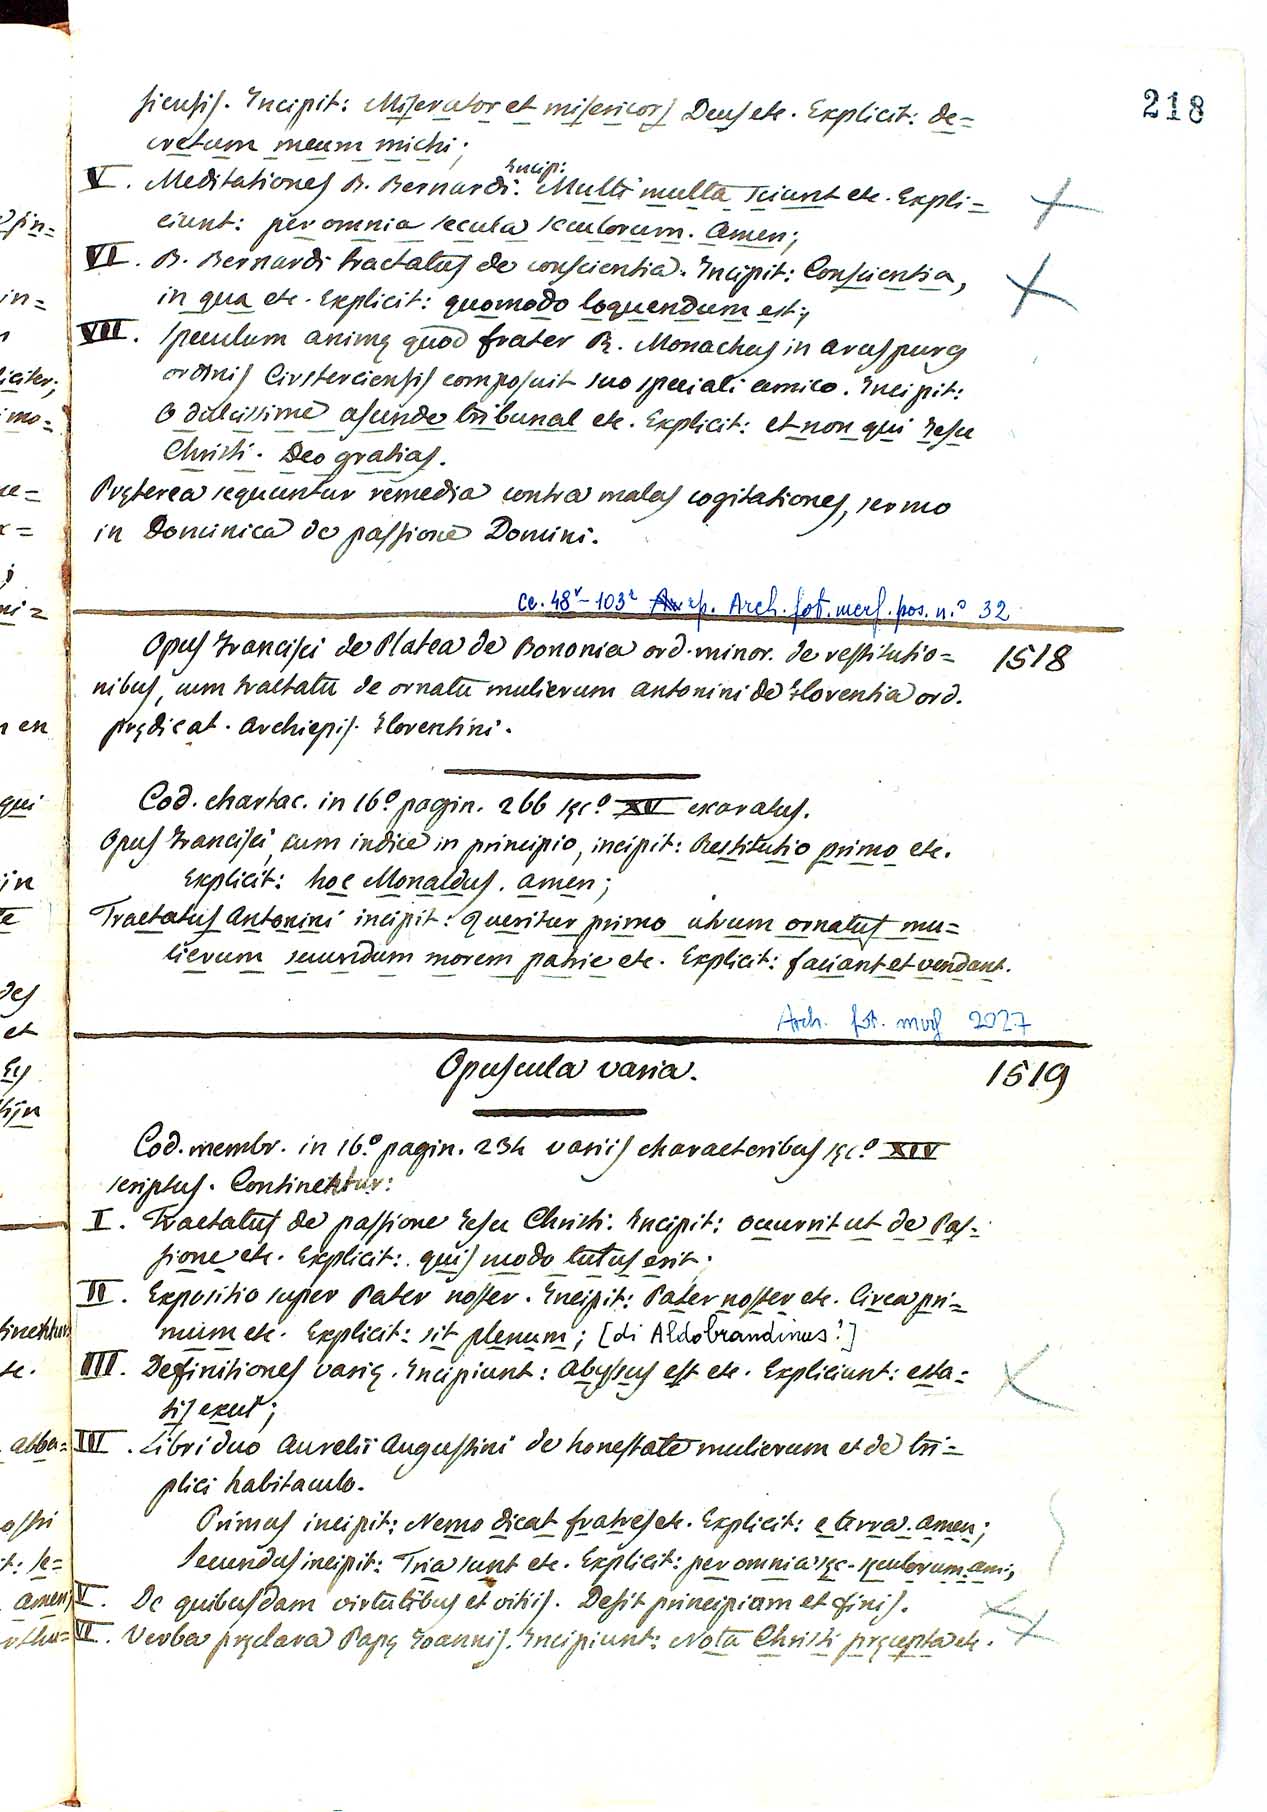 218
siensis. Incipit: Miserator et misericors Deus etc. Explicit: de=
cretum meum michi;
V. Meditationes B. Bernardi. Incip: Multi multa sciunt etc. Expli=
ciunt: per omnia secula seculorum. Amen;
VI. B. Bernardi tractatus de conscientia. Incipit: Conscientia,
in qua etc. Explicit: quomodo loquendum est;
VII. Speculum animę quod frater R. Monachus in
ordinis Cirsterciensis composuit suo speciali amico. Incipit:
O dulcissime ascende tribunal etc. Explicit: et non qui Jesu
Christi. Deo gratias.
Pręterea sequuntur remedia contra malas cogitationes, sermo
in Dominica de passione Domini.
cc. 48v - 103r rip. Arch. fot. mss. pos. n.° 32
Opus Francisci de Platea de Bononia ord. minor. de restitutio= 1518
nibus, cum tractatu de ornatu mulierum Antonini de Florentia ord.
prędicat. Archiepis. Florentini.
Cod. chartac. in 16° pagin. 266 sęc° XV exaratus.
Opus Francisci, cum indice in principio, incipit: Restitutio primo etc.
Explicit: hoc Monaldus. Amen;
Tractatus Antonini incipit: Queritur primo utrum ornatus mu=
lierum secundum morem patrie etc. Explicit: faciant et vendant.
Arch. fot. mss 2027
Opuscula varia. 1519
Cod. membr. in 16° pagin. 234 variis characteribus sęc° XIV
scriptus. Continentur:
I. Tractatus de passione Jesu Christi. Incipit: occurrit ut de Pas=
sione etc. Explicit: quis modo tutus erit;
II. Expositio super Pater noster. Incipit: Pater noster etc. Circa pri=
mum etc. Explicit: sit plenum; [di Aldobrandinus?]
III. Definitiones varię. Incipiunt: Abyssus est etc. Expliciunt: esta=
sis
IIII. Libri duo Aurelii Augustini de honestate mulierum et de tri=
plici habitaculo.
Primus incipit: Nemo dicat fratres etc. Explicit: e terra. Amen;
Secundus incipit: Tria sunt etc. Explicit: per omnia sęc. sęculorum. am;
V. De quibusdam virtutibus et vitiis. Desit principium et finis.
VI. Verba pręclara Papę Joannis. Incipiunt: Nota Christi pręcepta etc.